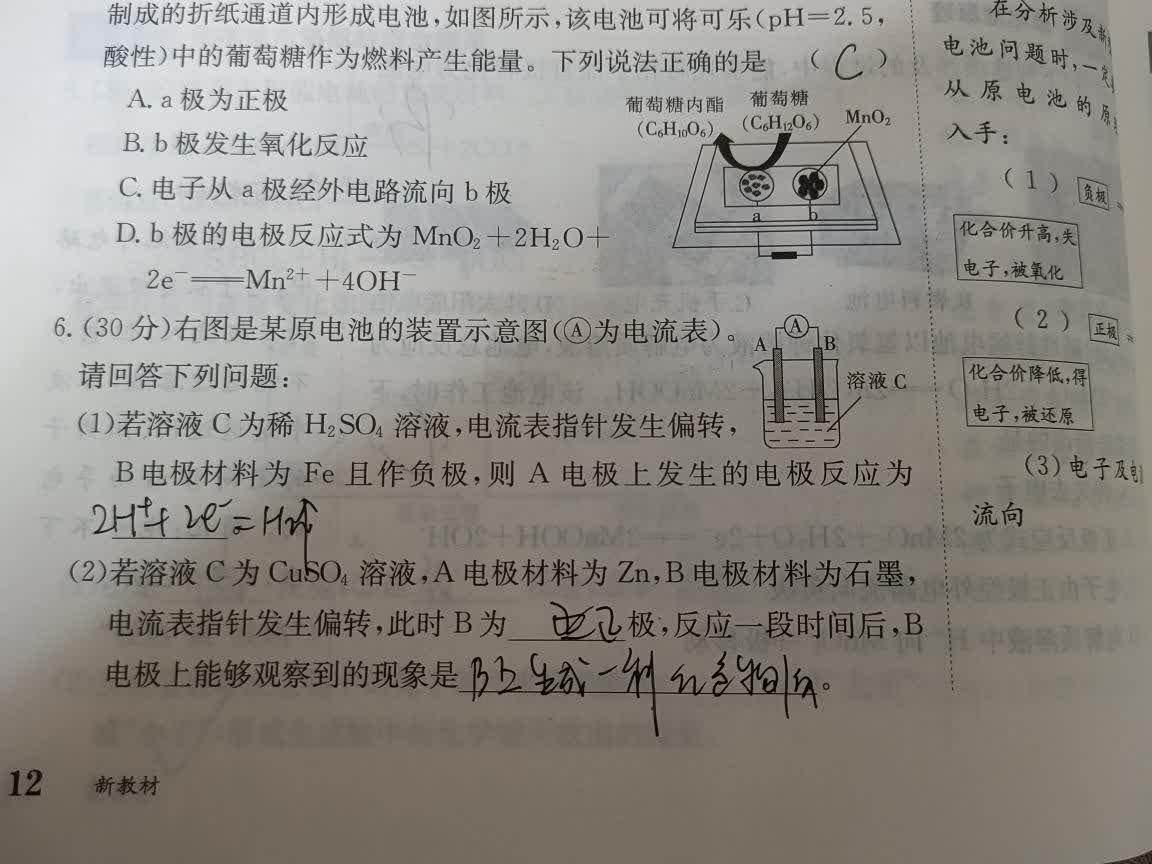 制成的折纸通道内形成电池,如图所示,该电池可将可乐(pH=2.5,
酸性)中的葡萄糖作为燃料产生能量。下列说法正确的是 ( C )
A. a 极为正极
B. b 极发生氧化反应
C. 电子从 a 极经外电路流向 b 极
D. b 极的电极反应式为 MnO₂+2H₂O+
2e⁻══Mn²⁺+4OH⁻
葡萄糖内酯 葡萄糖
(C₆H₁₀O₆) (C₆H₁₂O₆) MnO₂
a b
6. (30 分)右图是某原电池的装置示意图(Ⓐ为电流表)。
请回答下列问题:
A Ⓐ B
溶液 C
(1)若溶液 C 为稀 H₂SO₄ 溶液,电流表指针发生偏转,
B 电极材料为 Fe 且作负极,则 A 电极上发生的电极反应为
2H⁺+2e⁻=H₂↑
(2)若溶液 C 为 CuSO₄ 溶液,A 电极材料为 Zn,B 电极材料为石墨,
电流表指针发生偏转,此时 B 为 正 极,反应一段时间后,B
电极上能够观察到的现象是 B上生成一种红色物质。
12 新教材
在分析涉及新
电池问题时,一定
从原电池的原
入手:
(1) 负极
化合价升高,失
电子,被氧化
(2) 正极
化合价降低,得
电子,被还原
(3)电子及电
流向